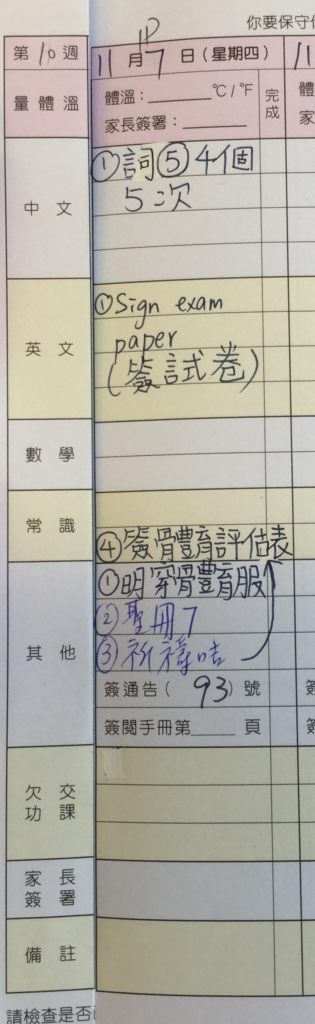 你要保守
第10週
11月7日(星期四)
11
量體溫
體溫：______℃/℉
家長簽署：______
完成
中文
①詞⑤4個
5次
英文
①Sign exam
paper
(簽試卷)
數學
常識
④簽體育評估表
其他
①明穿體育服
②聖冊7
③祈禱咭
簽通告( 93 )號
簽閱手冊第____頁
欠交功課
家長簽署
備註
請檢查是否